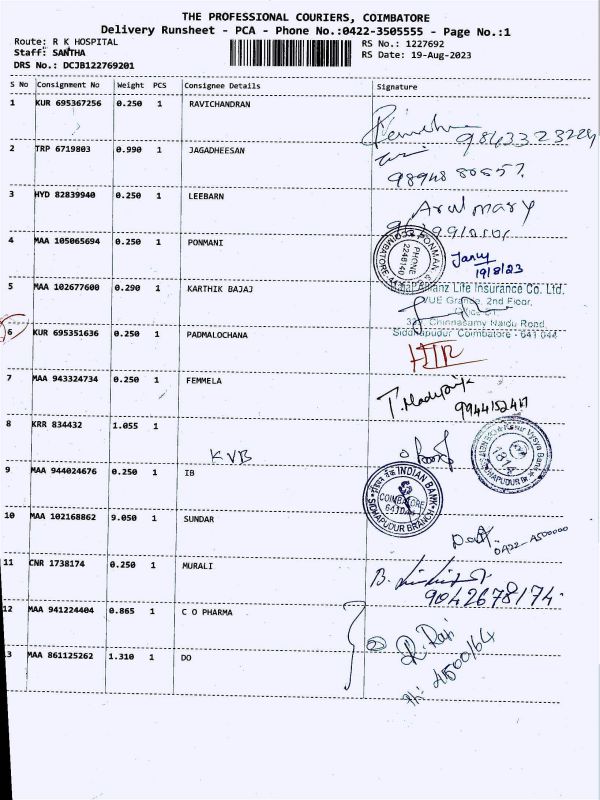 THE PROFESSIONAL COURIERS, COIMBATORE
Delivery Runsheet - PCA - Phone No.:0422-3505555 - Page No.:1
Route: R K HOSPITAL
Staff: SANTHA
DRS No.: DCJB122769201
RS No.: 1227692
RS Date: 19-Aug-2023
S No Consignment No Weight PCS Consignee Details Signature
1 KUR 695367256 0.250 1 RAVICHANDRAN
9843323224
2 TRP 6719803 0.990 1 JAGADHEESAN
3 HYD 82839940 0.250 1 LEEBARN
Arul mary
4 MAA 105065694 0.250 1 PONMANI
PHONE
2246140
COIMBATORE
19/8/23
5 MAA 102677600 0.290 1 KARTHIK BAJAJ
Allianz Life Insurance Co. Ltd.
VUE Grande, 2nd Floor,
Chinnasamy Naidu Road,
Siddhapudur, Coimbatore - 641 044
6 KUR 695351636 0.250 1 PADMALOCHANA
7 MAA 943324734 0.250 1 FEMMELA
8 KRR 834432 1.055 1
KVB
Karur Vysya Bank
9 MAA 944024676 0.250 1 IB
INDIAN BANK
COIMBATORE
SIDHAPUDUR BRANCH
10 MAA 102168862 9.050 1 SUNDAR
0422-4500000
11 CNR 1738174 0.250 1 MURALI
9042678174
12 MAA 941224404 0.865 1 C O PHARMA
R. Ravi
13 MAA 861125262 1.310 1 DO
Ph: 4500164